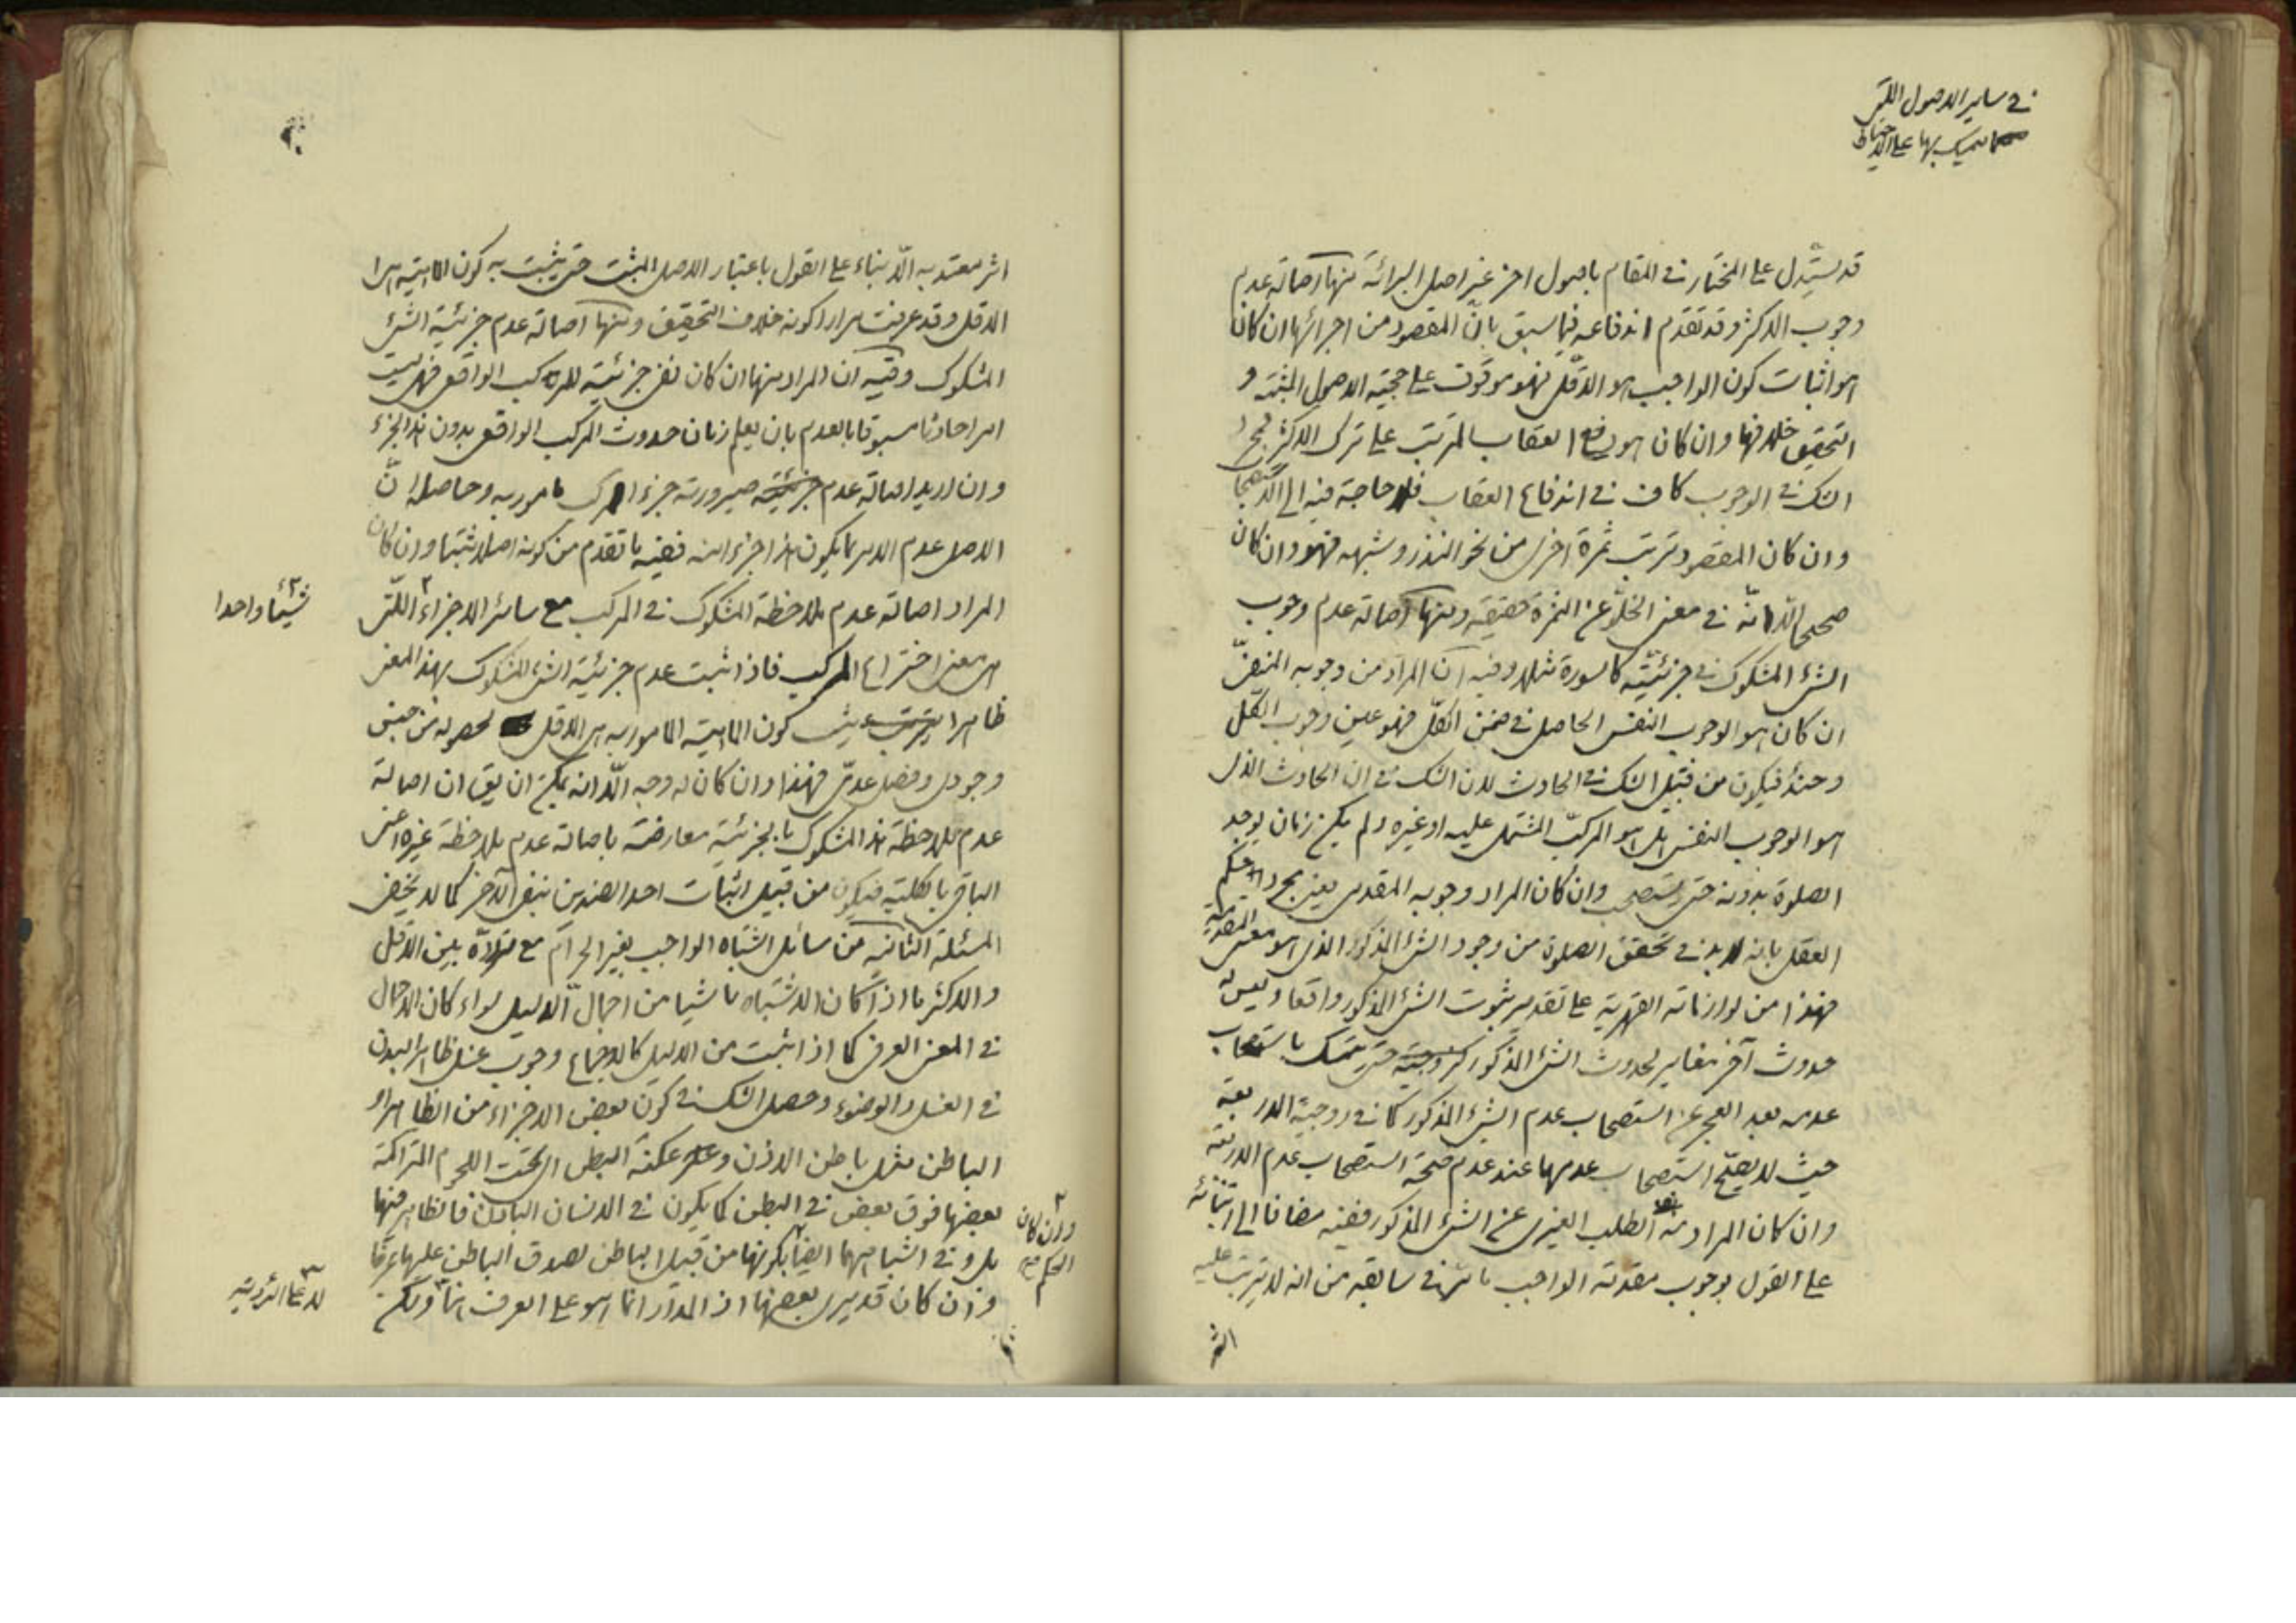 في ساير الاصول اللتي
يتمسك بها على الاحتياط
قد يستدل على المختار في المقام باصول اخر غير اصل البرائة منها اصالة عدم
وجوب الاكثر وقد تقدم اندفاعه فيما سبق بان المقصود من اجرائها ان كان
هو اثبات كون الواجب هو الاقل فهو موقوف على حجية الاصول المثبتة و
التحقيق خلافها وان كان هو رفع العقاب المترتب على ترك الاكثر فمجرد
الشك في الوجوب كاف في اندفاع العقاب فلا حاجة فيه الى الاستصحاب
وان كان المقصود ترتب ثمرة اخرى من نحو النذر وشبهه فهو وان كان
صحيحا الا انه في معنى الخلو عن الثمرة حقيقة ومنها اصالة عدم وجوب
الشئ المشكوك في جزئيته كالسورة مثلا وفيه ان المراد من وجوبه المنفي
ان كان هو الوجوب النفسي الحاصل في ضمن الكل فهو عين وجوب الكل
وحينئذ فيكون من قبيل الشك في الحادث لان الشك في ان الحادث الذي
هو الوجوب النفسي هل هو المركب المشتمل عليه او غيره ولم يكن زمان يوجد
الصلوة بدونه حتى يستصحب وان كان المراد وجوبه المقدمي يعني مجرد حكم
العقل بانه لابد في تحقق الصلوة من وجود الشئ المذكور الذي هو معنى المقدمية
فهذا من لوازماته القهرية على تقدير ثبوت الشئ المذكور واقعا وليس له
حدوث آخر مغاير لحدوث الشئ المذكور كزوجية حتى يتمسك باستصحاب
عدمه بعد العجز عن استصحاب عدم الشئ المذكور كما في زوجية الاربعة
حيث لا يصح استصحاب عدمها عند عدم صحة استصحاب عدم الاربعة
وان كان المراد منه الطلب الغيري عن الشئ المذكور ففيه مضافا الى ابتنائه
على القول بوجوب مقدمة الواجب ما مر في سابقه من انه لا يترتب عليه
اثر
اثر معتد به الا بناء على القول باعتبار الاصل المثبت حتى يثبت به كون الماهية هي
الاقل وقد عرفت مرارا كونه خلاف التحقيق ومنها اصالة عدم جزئية الشئ
المشكوك وفيه ان المراد منها ان كان نفي جزئيته للمركب الواقعي فهي ليست
امرا حادثا مسبوقا بالعدم بان يعلم زمان حدوث المركب الواقعي بدون هذا الجزء
وان اريد اصالة عدم جزئية صيرورته جزء المركب مامور به وحاصله ان
الاصل عدم الامر بما يكون هذا جزء منه ففيه ما تقدم من كونه اصلا مثبتا وان كان
المراد اصالة عدم ملاحظة المشكوك في المركب مع سائر الاجزاء اللتي
شيئا واحدا
هي معنى اختراع المركب فاذا ثبت عدم جزئية الشئ المشكوك بهذا المعنى
ظاهرا يترتب يثبت كون الماهية المامور به هي الاقل لحصوله من جنس
وجودي وفصل عدمي فهذا وان كان له وجه الا انه يمكن ان يق ان اصالة
عدم ملاحظة هذا المشكوك بالجزئية معارضة باصالة عدم ملاحظة غيره اعني
الباقي بالكلية فيكون من قبيل اثبات احد الضدين بنفي الآخر كما لا يخفى
المسئلة الثانية من مسائل اشتباه الواجب بغير الحرام مع تردده بين الاقل
والاكثر ما اذا كان الاشتباه ناشيا من اجمال الدليل سواء كان الاجمال
في المعنى العرفي كما اذا ثبت من الدليل كالاجماع وجوب غسل ظاهر البدن
في الغسل والوضوء وحصل الشك في كون بعض الاجزاء من الظاهر او
الباطن مثل باطن الاذن وعكنة البطن اي تحت اللحوم المتراكمة
بعضها فوق بعض في البطن كما يكون في الانسان البادن فالظاهر فيها
وان كان
الحكم
بل وفي اشباهها ايضا بكونها من قبيل الباطن لصدق الباطن عليها عرفا
وان كان قد يرى بعضها اذ المدار انما هو على العرف
لا على الرؤية